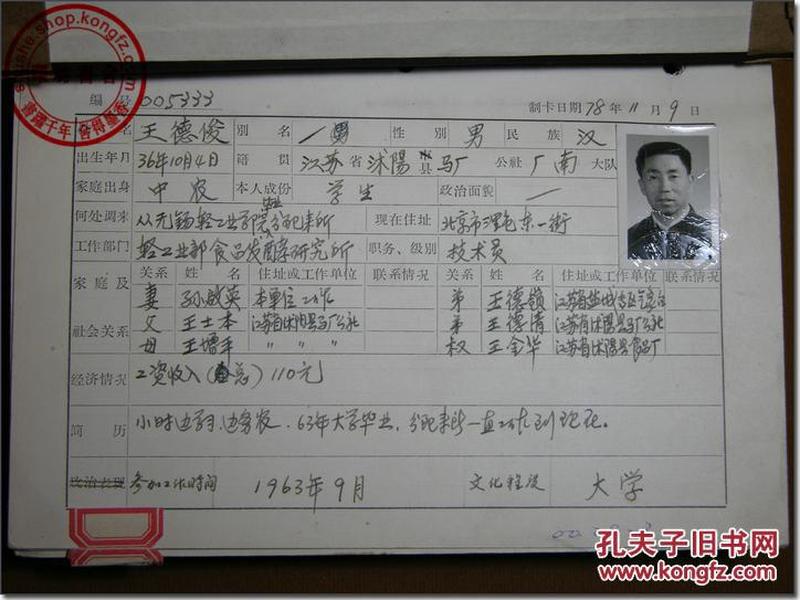 编号 005333 制卡日期 78年11月9日
姓名 王德俊 别名 / 性别 男 民族 汉
出生年月 36年10月4日 籍贯 江苏省沭陽县马厂公社厂南大队
家庭出身 中农 本人成份 学生 政治面貌 /
何处调来 从无锡轻工业学院分配来所 现在住址 北京市 东一街
工作部门 轻工业部食品发酵研究所 职务、级别 技术员
家庭及社会关系
关系 姓名 住址或工作单位 联系情况 关系 姓名 住址或工作单位 联系情况
妻 孙敏英 本单位工作 弟 王德领 江苏省盐城
父 王士本 江苏省沭阳县马厂公社 弟 王德清 江苏省沭陽县马厂公社
母 王增平 " " " 叔 王金华 江苏省沭陽县食品厂
经济情况 工资收入(总)110元
简历 小时边学习、边务农,63年大学毕业,分配来所一直工作到现在。
政治表现 参加工作时间 1963年9月 文化程度 大学
shop.kongfz.com
书香千年 舍得墨香
孔夫子旧书网
www.kongfz.com